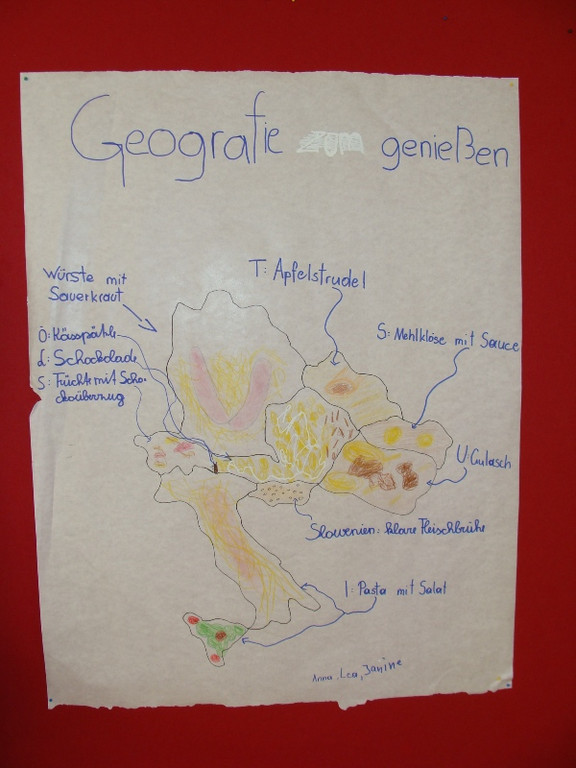 Geografie zum genießen
T: Apfelstrudel
Würste mit
Sauerkraut
S: Mehlklöse mit Sauce
Ö: Kässpätzle
L: Schockolade
S: Früchte mit Scho-
ckoüberzug
U: Gulasch
Slowenien: klare Fleischbrühe
I: Pasta mit Salat
Anna, Lea, Janine